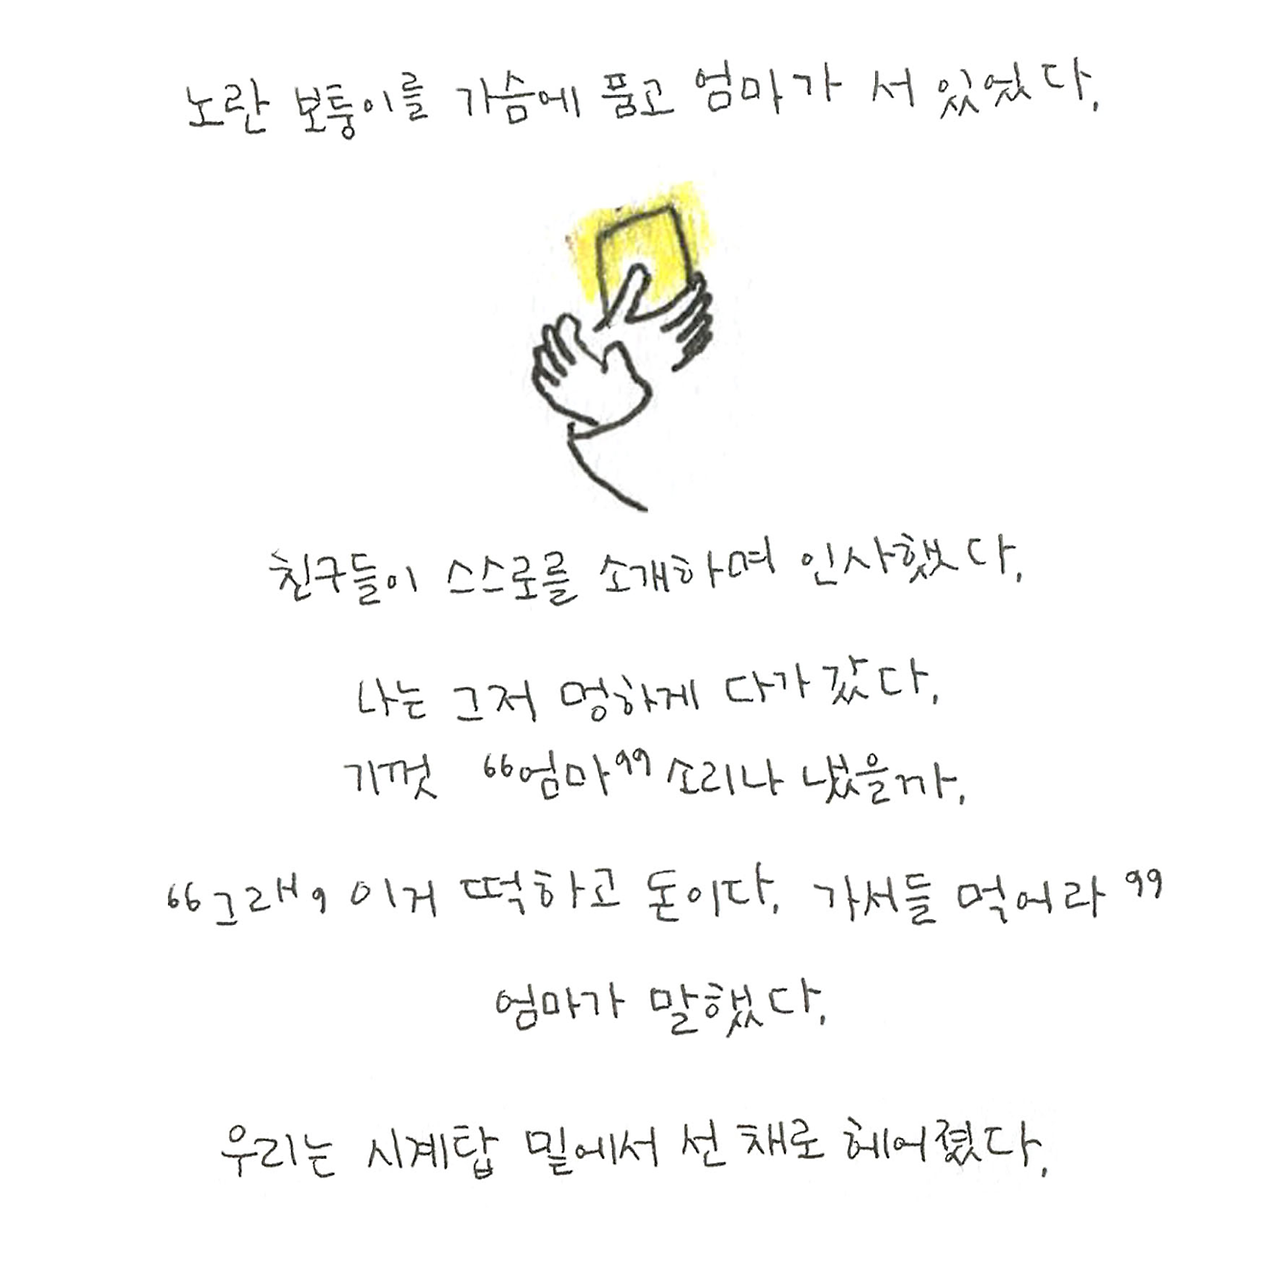 노란 보퉁이를 가슴에 품고 엄마가 서 있었다.
친구들이 스스로를 소개하며 인사했다.
나는 그저 멍하게 다가갔다.
기껏 “엄마” 소리나 냈을까.
“그래, 이거 떡하고 돈이다. 가서들 먹어라”
엄마가 말했다.
우리는 시계탑 밑에서 선 채로 헤어졌다.